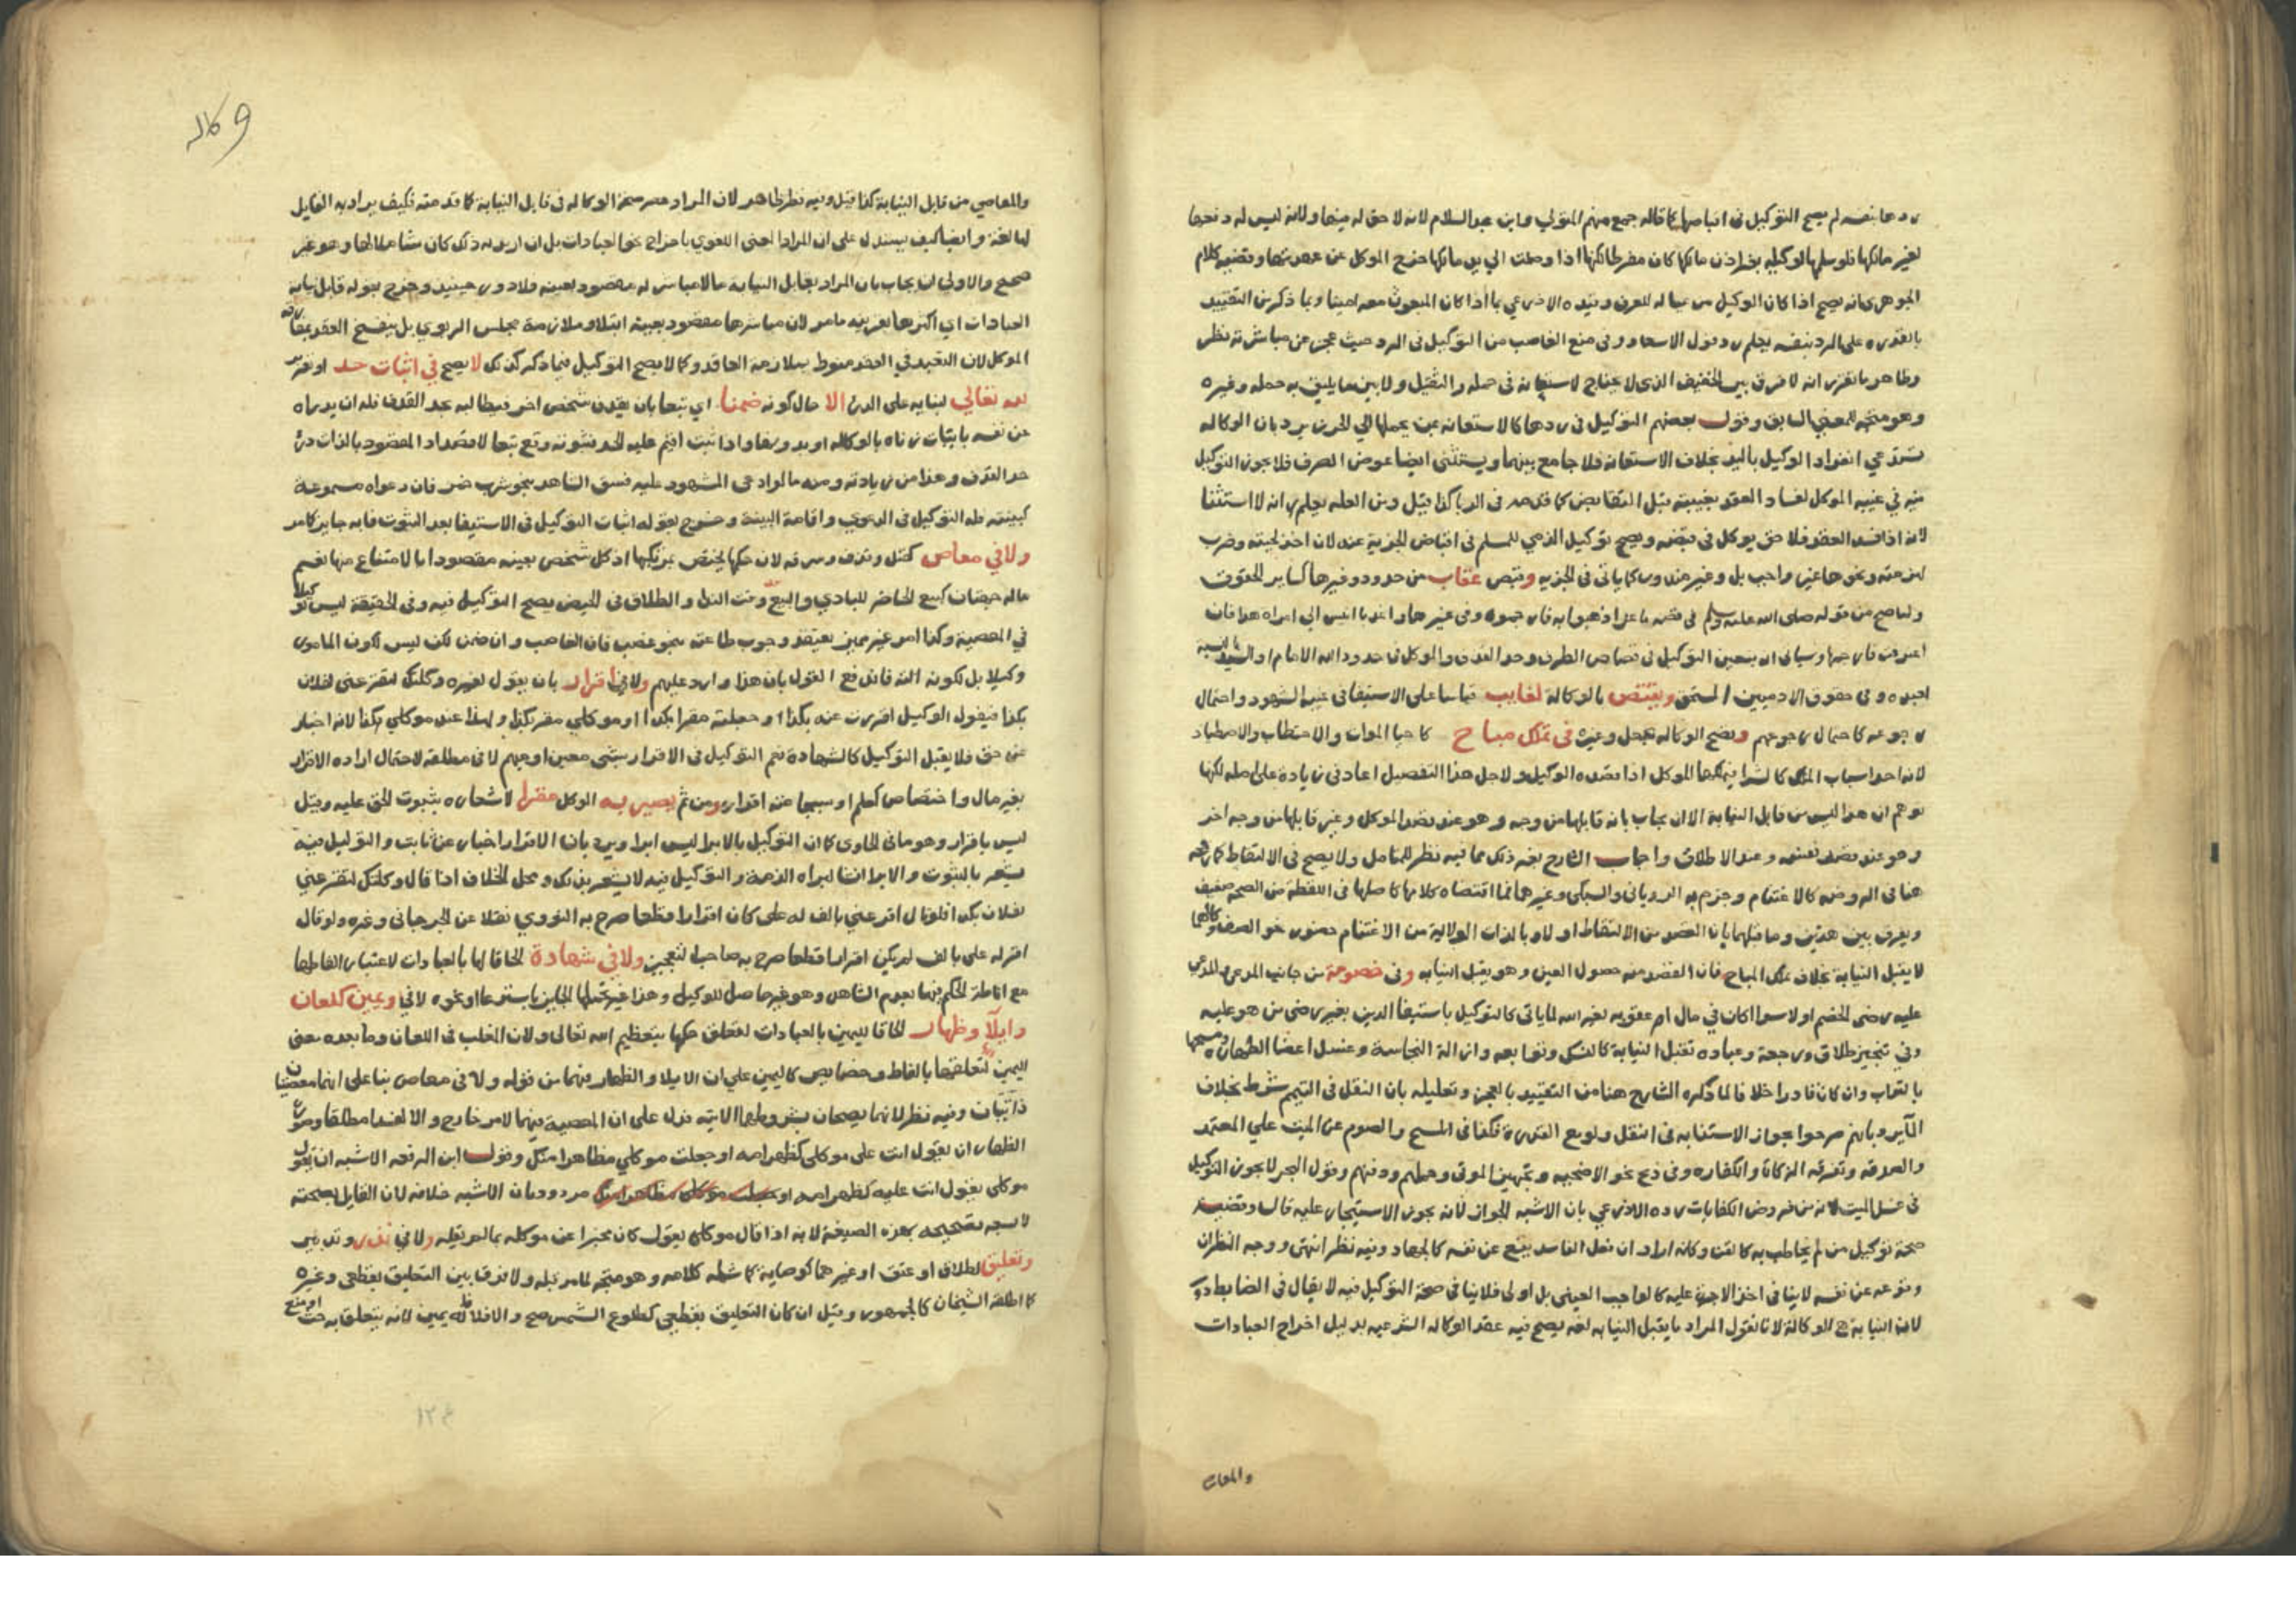 ردها بنفسه لم يصح التوكيل في اقباضها كما قاله جمع منهم المتولي وابن عبد السلام لانه لا حق له فيها ولانه ليس له دفعها
لغير مالكها فلو سلمها لوكيله بغير اذن مالكها كان مفرطا لكنها اذا وصلت الي يد مالكها خرج الموكل عن عهدتها وقضية كلام
الجوهري انه يصح اذا كان الوكيل من عياله للعرف وقيده الاذرعي بما اذا كان المبعوث معه امينا وبما ذكر من التقييد
بالقدرة على الرد بنفسه يعلم رد قول الاسعاد وفي منع الغاصب من التوكيل في الرد حيث عجز عن مباشرته نظر
وظاهر ما تقرر انه لا فرق بين الخفيف الذي لا يحتاج لاستعانة في حمله والثقيل ولا بين ما يليق به حمله وغيره
وهو متجه للمعنى السابق وقول بعضهم التوكيل في ردها كالاستعانة بمن يحملها الي الحرز يرد بان الوكالة
تستدعي انفراد الوكيل باليد بخلاف الاستعانة فلا جامع بينهما ويستثنى ايضا عوض الصرف فلا يجوز التوكيل
فيه في غيبة الموكل لفساد العقد بغيبته قبل التقابض كما قدمه في الربا كذا قيل ومن العلة يعلم انه لا استثنا
لانه اذا فسد العقد فلا حق يوكل في قبضه ويصح توكيل الذمي للمسلم في اقباض الجزية عنه لان اخذ لحيته وضرب
لهزمته ونحوها غير واجب بل وغير مندوب كما ياتي في الجزيه وقبض عقاب من حدود وغيرها كساير الحقوق
ولما صح من قوله صلى الله عليه وسلم في قصة ماعز اذهبوا به فارجموه وفي غيرها واغد يا انيس الي امراة هذا فان
اعترفت فارجمها وسياتي انه يتعين التوكيل في قصاص الطرف وحد القذف والموكل في حدود الله الامام او السيد
وفي حقوق الادميين المستحق ويقتص بالوكالة لغايب قياسا على الاستيفا في غيبة الشهود واحتمال
رجوعه كاحتمال رجوعهم وتصح الوكالة بجعل وغيره في تملك مباح كاحيا الموات والاحتطاب والاصطياد
لانه احد اسباب الملك كالشرا فيملكها الموكل اذا قصده الوكيل ولاجل هذا التفصيل اعاد في زيادة على اصله لكنها
توهم ان هذا ليس من قابل النيابة الا ان يجاب بانه قابلها من وجه وهو عند قصد الموكل وغير قابلها من وجه اخر
وهو عند قصد نفسه وعند الاطلاق واجاب الشارح بغير ذلك مما فيه نظر للمتامل ولا يصح في الالتقاط كما رجحه
هنا في الروضة كالاغتنام وجزم به الروياني والسبكي وغيرهما فما اقتضاه كلامها كاصلها في اللقطة من الصحة ضعيف
ويفرق بين هذين وما قبلهما بان القصد من الالتقاط اولا وبالذات الولاية ومن الاغتنام حضور نحو الصف وكلاهما
لا يقبل النيابة بخلاف تملك المباح فان القصد منه حصول العين وهو يقبل النيابه وفي خصومة من جانب المدعي والمدعى
عليه رضي الخصم او لا سوا كان في مال ام عقوبه لغير الله لما ياتي كالتوكيل باستيفا الدين بغير رضى من هو عليه
وفي تنجيز طلاق ورجعة وعباده تقبل النيابة كالنسك وتوابعه وازالة النجاسة وغسل اعضا الطهارة ومسحها
بالتراب وان كان قادرا خلافا لما ذكره الشارح هنا من التقييد بالعجز وتعليله بان النقل في التيمم شرط بخلاف
الماء يرد بانهم صرحوا بجواز الاستنابه في النقل ولو مع القدرة فكذا في المسح والصوم عن الميت علي المعتمد
والصدقه وتفرقة الزكاة والكفاره وفي ذبح نحو الاضحيه وتجهيز الموتى وحملهم ودفنهم وقول البحر لا يجوز التوكيل
في غسل الميت لانه من فروض الكفايات رده الاذرعي بان الاشبه الجواز لانه يجوز الاستيجار عليه قال وقضيته
صحة توكيل من لم يخاطب به كالقن وكانه اراد ان فعل الفاسد يقع عن نفسه كالجهاد وفيه نظر انتهى ووجه النظر ان
وقوعه عن نفسه لا ينافي اخذ الاجرة عليه كالواجب العيني بل اولى فلا ينافي صحة التوكيل فيه لا يقال في الضابط دور
لان النيابة هي الوكالة لانا نقول المراد ما يقبل النيابه لغه يصح فيه عقد الوكاله الشرعيه بدليل اخراج العبادات
والمعاصي
وكاله
والمعاصي من قابل النيابة كذا قيل وفيه نظر ظاهر لان المراد حصر صحة الوكالة في قابل النيابة كما قدمته فكيف يراد به القابل
لها لغة وايضا كيف يستدل على ان المراد المعنى اللغوي باخراج نحو العبادات بل ان اريد به ذلك كان شاملا لها وهو غير
صحيح والاولى ان يجاب بان المراد بقابل النيابة ما لا مباشرته مقصود بعينه فلا دور حينيذ وخرج بقوله قابل نيابه
العبادات اي اكثرها بقرينة ما مر لان مباشرها مقصود بعينه ابتلا وملازمة مجلس الربوي بل ينفسخ العقد بمفارقة
الموكل لان التعبد في العقد منوط بملازمة العاقد وكما لا يصح التوكيل فيما ذكر كذلك لا يصح في اثبات حد او تعزير
لله تعالي لبنايه على الدرء الا حال كونه ضمنا اي تبعا بان يقذف شخص اخر فيطالبه بحد القذف فله ان يدراه
عن نفسه باثبات زناه بالوكاله او بدونها واذا ثبت اقيم عليه الحد فثبوته وقع تبعا لا قصدا اذ المقصود بالذات درء
حد القذف وهذا من زيادته ومنه ما لو ادعى المشهود عليه فسق الشاهد بنحو شرب خمر فان دعواه مسموعة
كبينته فله التوكيل في الدعوي واقامة البينة وخرج بقوله اثبات التوكيل في الاستيفا بعد الثبوت فانه جايز كما مر
ولا في معاص كقتل وقذف وسرقه لان حكمها يختص بمرتكبها اذ كل شخص بعينه مقصود بالامتناع منها نعم
ماله جهتان كبيع الحاضر للبادي والبيع وقت الندا والطلاق في الحيض يصح التوكيل فيه وفي الحقيقة ليس توكيلا
في المعصية وكذا امر غير مميز يعتقد وجوب طاعته بنحو غصب فان الغاصب وان ضمن لكن ليس لكون المامور
وكيلا بل لكونه الته فاندفع القول بان هذا وارد عليهم ولا في اقرار بان يقول لغيره وكلتك لتقر عني لفلان
بكذا فيقول الوكيل اقررت عنه بكذا او جعلته مقرا بكذا او موكلي مقر بكذا ولهذا عند موكلي بكذا لانه اخبار
عن حق فلا يقبل التوكيل كالشهادة نعم التوكيل في الاقرار بشي معين او مبهم لا في مطلقه لاحتمال ارادة الاقرار
بغير مال واختصاص كعلم او سبها عنه اقرار ومن ثم يصير به الموكل مقرا لاشعاره بثبوت الحق عليه وقيل
ليس باقرار وهو ما في الحاوي كما ان التوكيل بالابرا ليس ابرا ويرد بان الاقرار اخبار عن ثابت والتوكيل فيه
يشعر بالثبوت والابرا انشا لبراة الذمة والتوكيل فيه لا يشعر بذلك ومحل الخلاف اذا قال وكلتك لتقر عني
لفلان بكذا فلو قال اقر عني بالف له علي كان اقرارا قطعا صرح به النووي نقلا عن الجرجاني وغيره ولو قال
اقر له علي بالف لم يكن اقرارا قطعا صرح به صاحب التعجيز ولا في شهادة الحاقا لها بالعبادات لاعتبار الفاظها
مع اناطة الحكم فيها بعلم الشاهد وهو غير حاصل للوكيل وهذا غير تحملها الجايز باسترعا او نحوه لا في ويمين كلعان
وايلا وظهار الحاقا لليمين بالعبادات لتعلق حكمها بتعظيم الله تعالى ولان المغلب في اللعان وما بعده معنى
اليمين لتعلقها بالفاظ وخصايص كاليمين علي ان الايلا والظهار فيهما من قوله ولا في معاص بنا على انهما معصيتان
ذاتيتان وفيه نظر لانهما يصحان بشروطهما الاتيه فدل على ان المعصية فيهما لامر خارج والا لفسدا مطلقا وصورة
الظهار ان يقول انت على موكلي كظهر امه او جعلت موكلي مظاهرا منك وقول ابن الرفعه الاشبه ان يقول
موكلي يقول انت عليه كظهر امه او جعلت موكلي مظاهرا منك مردود بان الاشبه خلافه لان القايل بصحته
لا يتجه تصحيحه بهذه الصيغة لانه اذا قال موكلي يقول كان مخبرا عن موكله بما لم يقله ولا في نذر وتدبير
وتعليق لطلاق او عتق او غيرهما كوصاية كما شمله كلامه وهو متجه لما مر قبله ولا فرق بين التعليق بقطعي وغيره
كما اطلقه الشيخان كالجمهور وقيل ان كان التعليق بقطعي كطلوع الشمس صح والا فلا لانه يمين لانه يتعلق به حث او منع